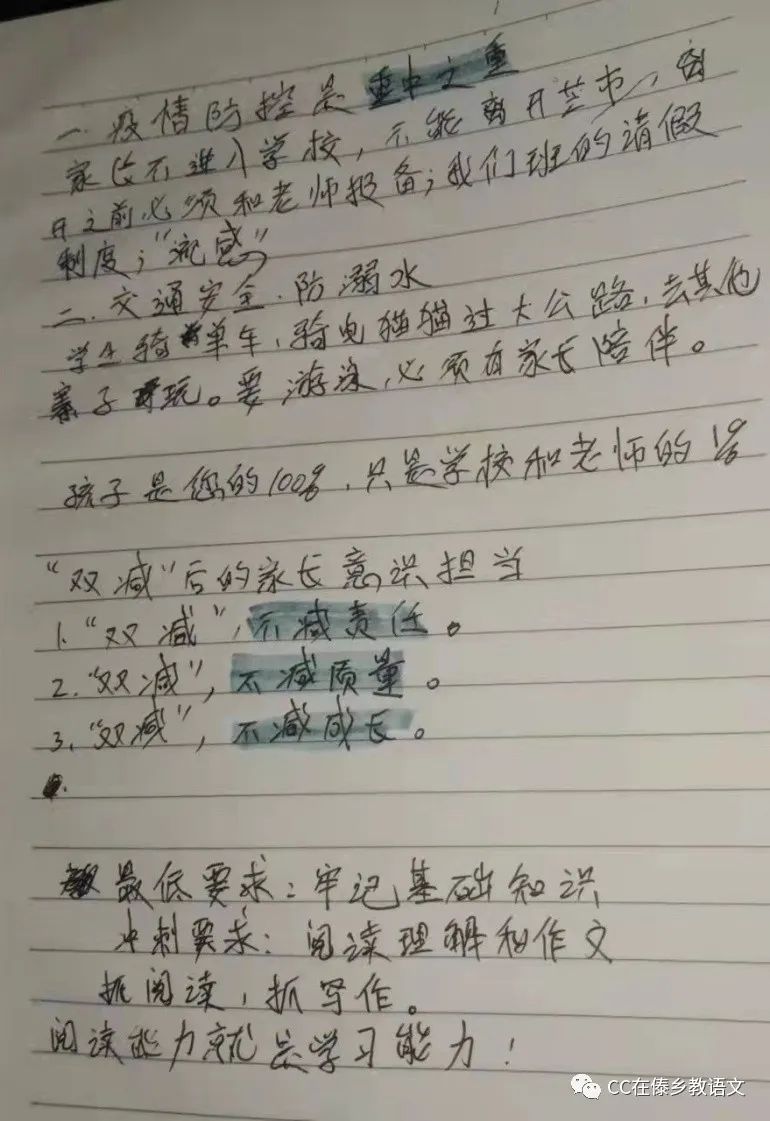 一.疫情防控是重中之重
家长不进入学校，不能离开芒市，离
开之前必须和老师报备；我们班的请假
制度；“流感”
二.交通安全.防溺水
学生骑单车，骑电猫猫过大公路，去其他
寨子玩。要游泳，必须有家长陪伴。
孩子是您的100%，只是学校和老师的1%
“双减”后的家长意识担当
1.“双减”，不减责任。
2.“双减”，不减质量。
3.“双减”，不减成长。
最低要求：牢记基础知识
冲刺要求：阅读理解和作文
抓阅读，抓写作。
阅读能力就是学习能力！
CC在傣乡教语文